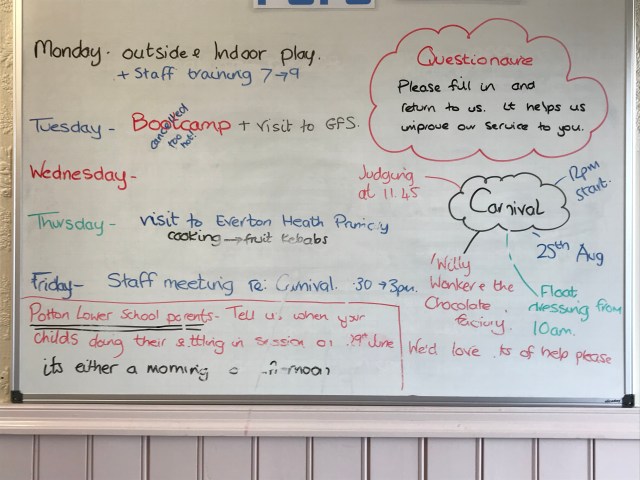 Monday. outside & Indoor play.
+ Staff training 7→9
Tuesday - Bootcamp + visit to GFS.
cancelled
too
hot!
Wednesday-
Thursday - visit to Everton Heath Primary
cooking → fruit kebabs
Friday- Staff meeting re: Carnival. 30 → 3pm.
Potton Lower School parents- Tell us when your
childs doing their settling in session on 29th June
its either a morning
Questionaire
Please fill in and
return to us. It helps us
improve our service to you.
Judging
at 11.45
12pm
start.
Carnival
25th Aug
'Willy
Wonker & the
Chocolate
factory.
Float
dressing from
10am.
We'd love of help please